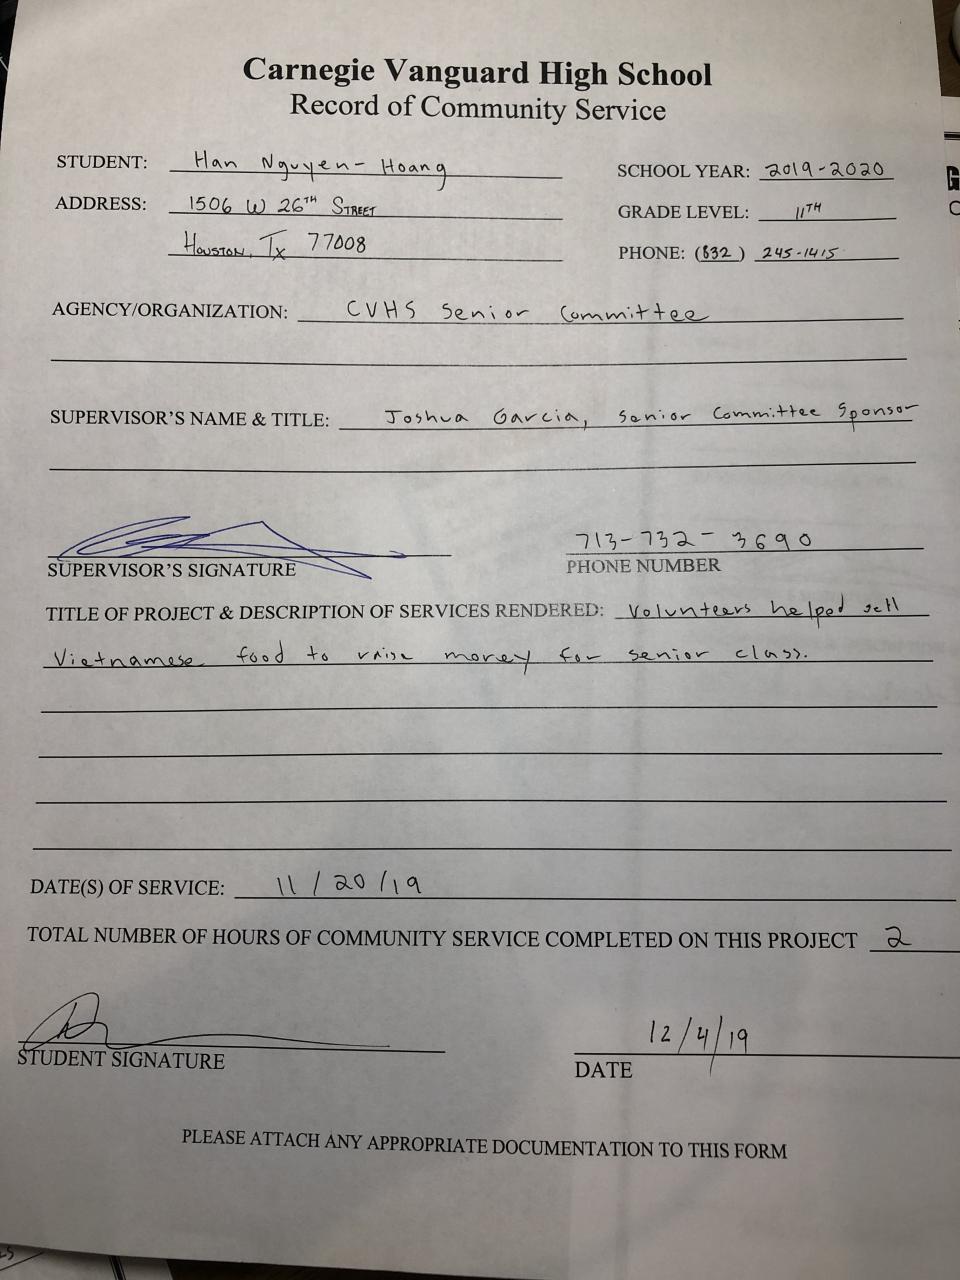 Carnegie Vanguard High School
Record of Community Service
STUDENT: Han Nguyen-Hoang
SCHOOL YEAR: 2019-2020
ADDRESS: 1506 W 26TH STREET
GRADE LEVEL: 11TH
HOUSTON, TX 77008
PHONE: (832) 245-1415
AGENCY/ORGANIZATION: CVHS Senior Committee
SUPERVISOR'S NAME & TITLE: Joshua Garcia, Senior Committee Sponsor
713-732-3690
SUPERVISOR'S SIGNATURE
PHONE NUMBER
TITLE OF PROJECT & DESCRIPTION OF SERVICES RENDERED: Volunteers helped sell
Vietnamese food to raise money for senior class.
DATE(S) OF SERVICE: 11/20/19
TOTAL NUMBER OF HOURS OF COMMUNITY SERVICE COMPLETED ON THIS PROJECT 2
12/4/19
STUDENT SIGNATURE
DATE
PLEASE ATTACH ANY APPROPRIATE DOCUMENTATION TO THIS FORM